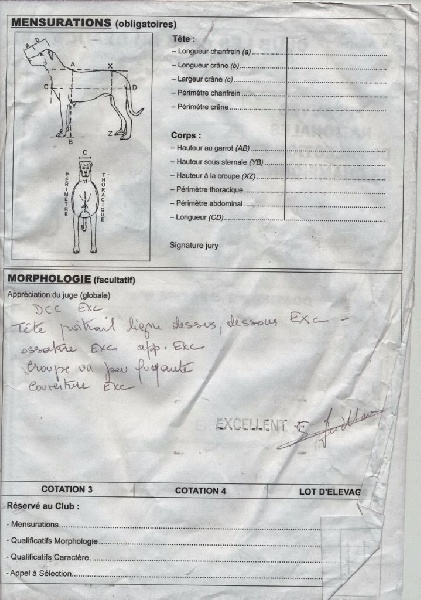 MENSURATIONS (obligatoires)
Tête :
– Longueur chanfrein (a)
– Longueur crâne (b)
– Largeur crâne (c)
– Périmètre chanfrein
– Périmètre crâne
Corps :
– Hauteur au garrot (AB)
– Hauteur sous sternale (YB)
– Hauteur à la croupe (XZ)
– Périmètre thoracique
– Périmètre abdominal
– Longueur (CD)
Signature jury
A X
C D
B Z
C
PÉRIMÈTRE THORACIQUE
MORPHOLOGIE (facultatif)
Appréciation du juge (globale)
DCC Exc
Tête portrait ligne dessus, dessous Exc –
ossature Exc app. Exc
Croupe un peu fuyante
Couverture Exc
EXCELLENT
COTATION 3 COTATION 4 LOT D'ELEVAG
Réservé au Club :
- Mensurations
- Qualificatifs Morphologie
- Qualificatifs Caractère
- Appel à Sélection